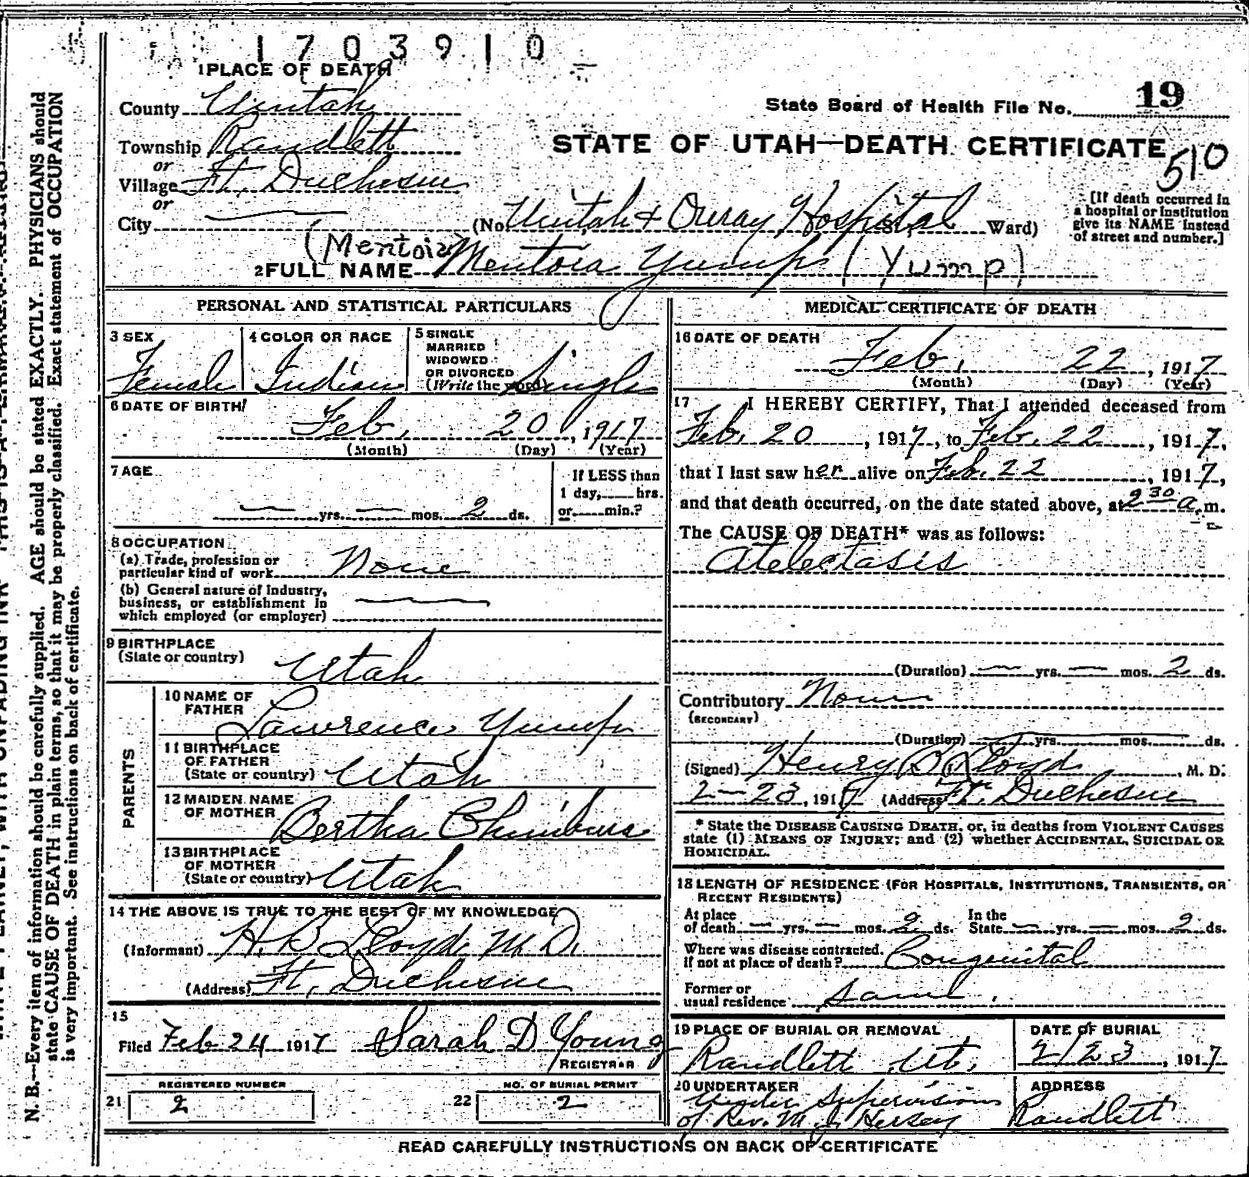 1703910
1 PLACE OF DEATH
County Uintah
State Board of Health File No. 19
Township Randlett
STATE OF UTAH—DEATH CERTIFICATE
510
or
Village Ft. Duchesne
or
City
(No Uintah & Ouray Hospital St. Ward)
[If death occurred in
a hospital or institution
give its NAME instead
of street and number.]
(Mentoia)
2 FULL NAME Mentoia Yump (Yump)
PERSONAL AND STATISTICAL PARTICULARS
3 SEX
Female
4 COLOR OR RACE
Indian
5 SINGLE
MARRIED
WIDOWED
OR DIVORCED
(Write the word) Single
6 DATE OF BIRTH
Feb. 20, 1917
(Month) (Day) (Year)
7 AGE
— yrs. — mos. 2 ds.
If LESS than
1 day, hrs.
or min.?
8 OCCUPATION
(a) Trade, profession or
particular kind of work None
(b) General nature of Industry,
business, or establishment in
which employed (or employer)
9 BIRTHPLACE
(State or country) Utah
PARENTS
10 NAME OF
FATHER Lawrence Yump
11 BIRTHPLACE
OF FATHER
(State or country) Utah
12 MAIDEN NAME
OF MOTHER Bertha
13 BIRTHPLACE
OF MOTHER
(State or country) Utah
14 THE ABOVE IS TRUE TO THE BEST OF MY KNOWLEDGE
(Informant) H. B. Lloyd M. D.
(Address) Ft. Duchesne
15
Filed Feb 24 1917 Sarah D Young
REGISTRAR
REGISTERED NUMBER
21 2
NO. OF BURIAL PERMIT
22 2
MEDICAL CERTIFICATE OF DEATH
16 DATE OF DEATH
Feb. 22, 1917
(Month) (Day) (Year)
17 I HEREBY CERTIFY, That I attended deceased from
Feb. 20, 1917, to Feb. 22, 1917,
that I last saw her alive on Feb. 22, 1917,
and that death occurred, on the date stated above, at 2 30 a. m.
The CAUSE OF DEATH* was as follows:
Atelectasis
(Duration) — yrs. — mos. 2 ds.
Contributory None
(SECONDARY)
(Duration) yrs. mos. ds.
(Signed) Henry B. Lloyd, M. D.
2—23, 1917 (Address) Ft. Duchesne
* State the DISEASE CAUSING DEATH, or, in deaths from VIOLENT CAUSES
state (1) MEANS OF INJURY; and (2) whether ACCIDENTAL, SUICIDAL OR
HOMICIDAL.
18 LENGTH OF RESIDENCE (FOR HOSPITALS, INSTITUTIONS, TRANSIENTS, OR
RECENT RESIDENTS)
At place
of death — yrs. — mos. 2 ds.
In the
State — yrs. — mos. 2 ds.
Where was disease contracted.
if not at place of death? Congenital
Former or
usual residence Same.
19 PLACE OF BURIAL OR REMOVAL
Randlett Ut.
DATE OF BURIAL
2/23, 1917
20 UNDERTAKER
Under Supervision
of Rev. M. J. Hersey
ADDRESS
Randlett
READ CAREFULLY INSTRUCTIONS ON BACK OF CERTIFICATE
N. B.—Every item of information should be carefully supplied. AGE should be stated EXACTLY. PHYSICIANS should
state CAUSE OF DEATH in plain terms, so that it may be properly classified. Exact statement of OCCUPATION
is very important. See instructions on back of certificate.